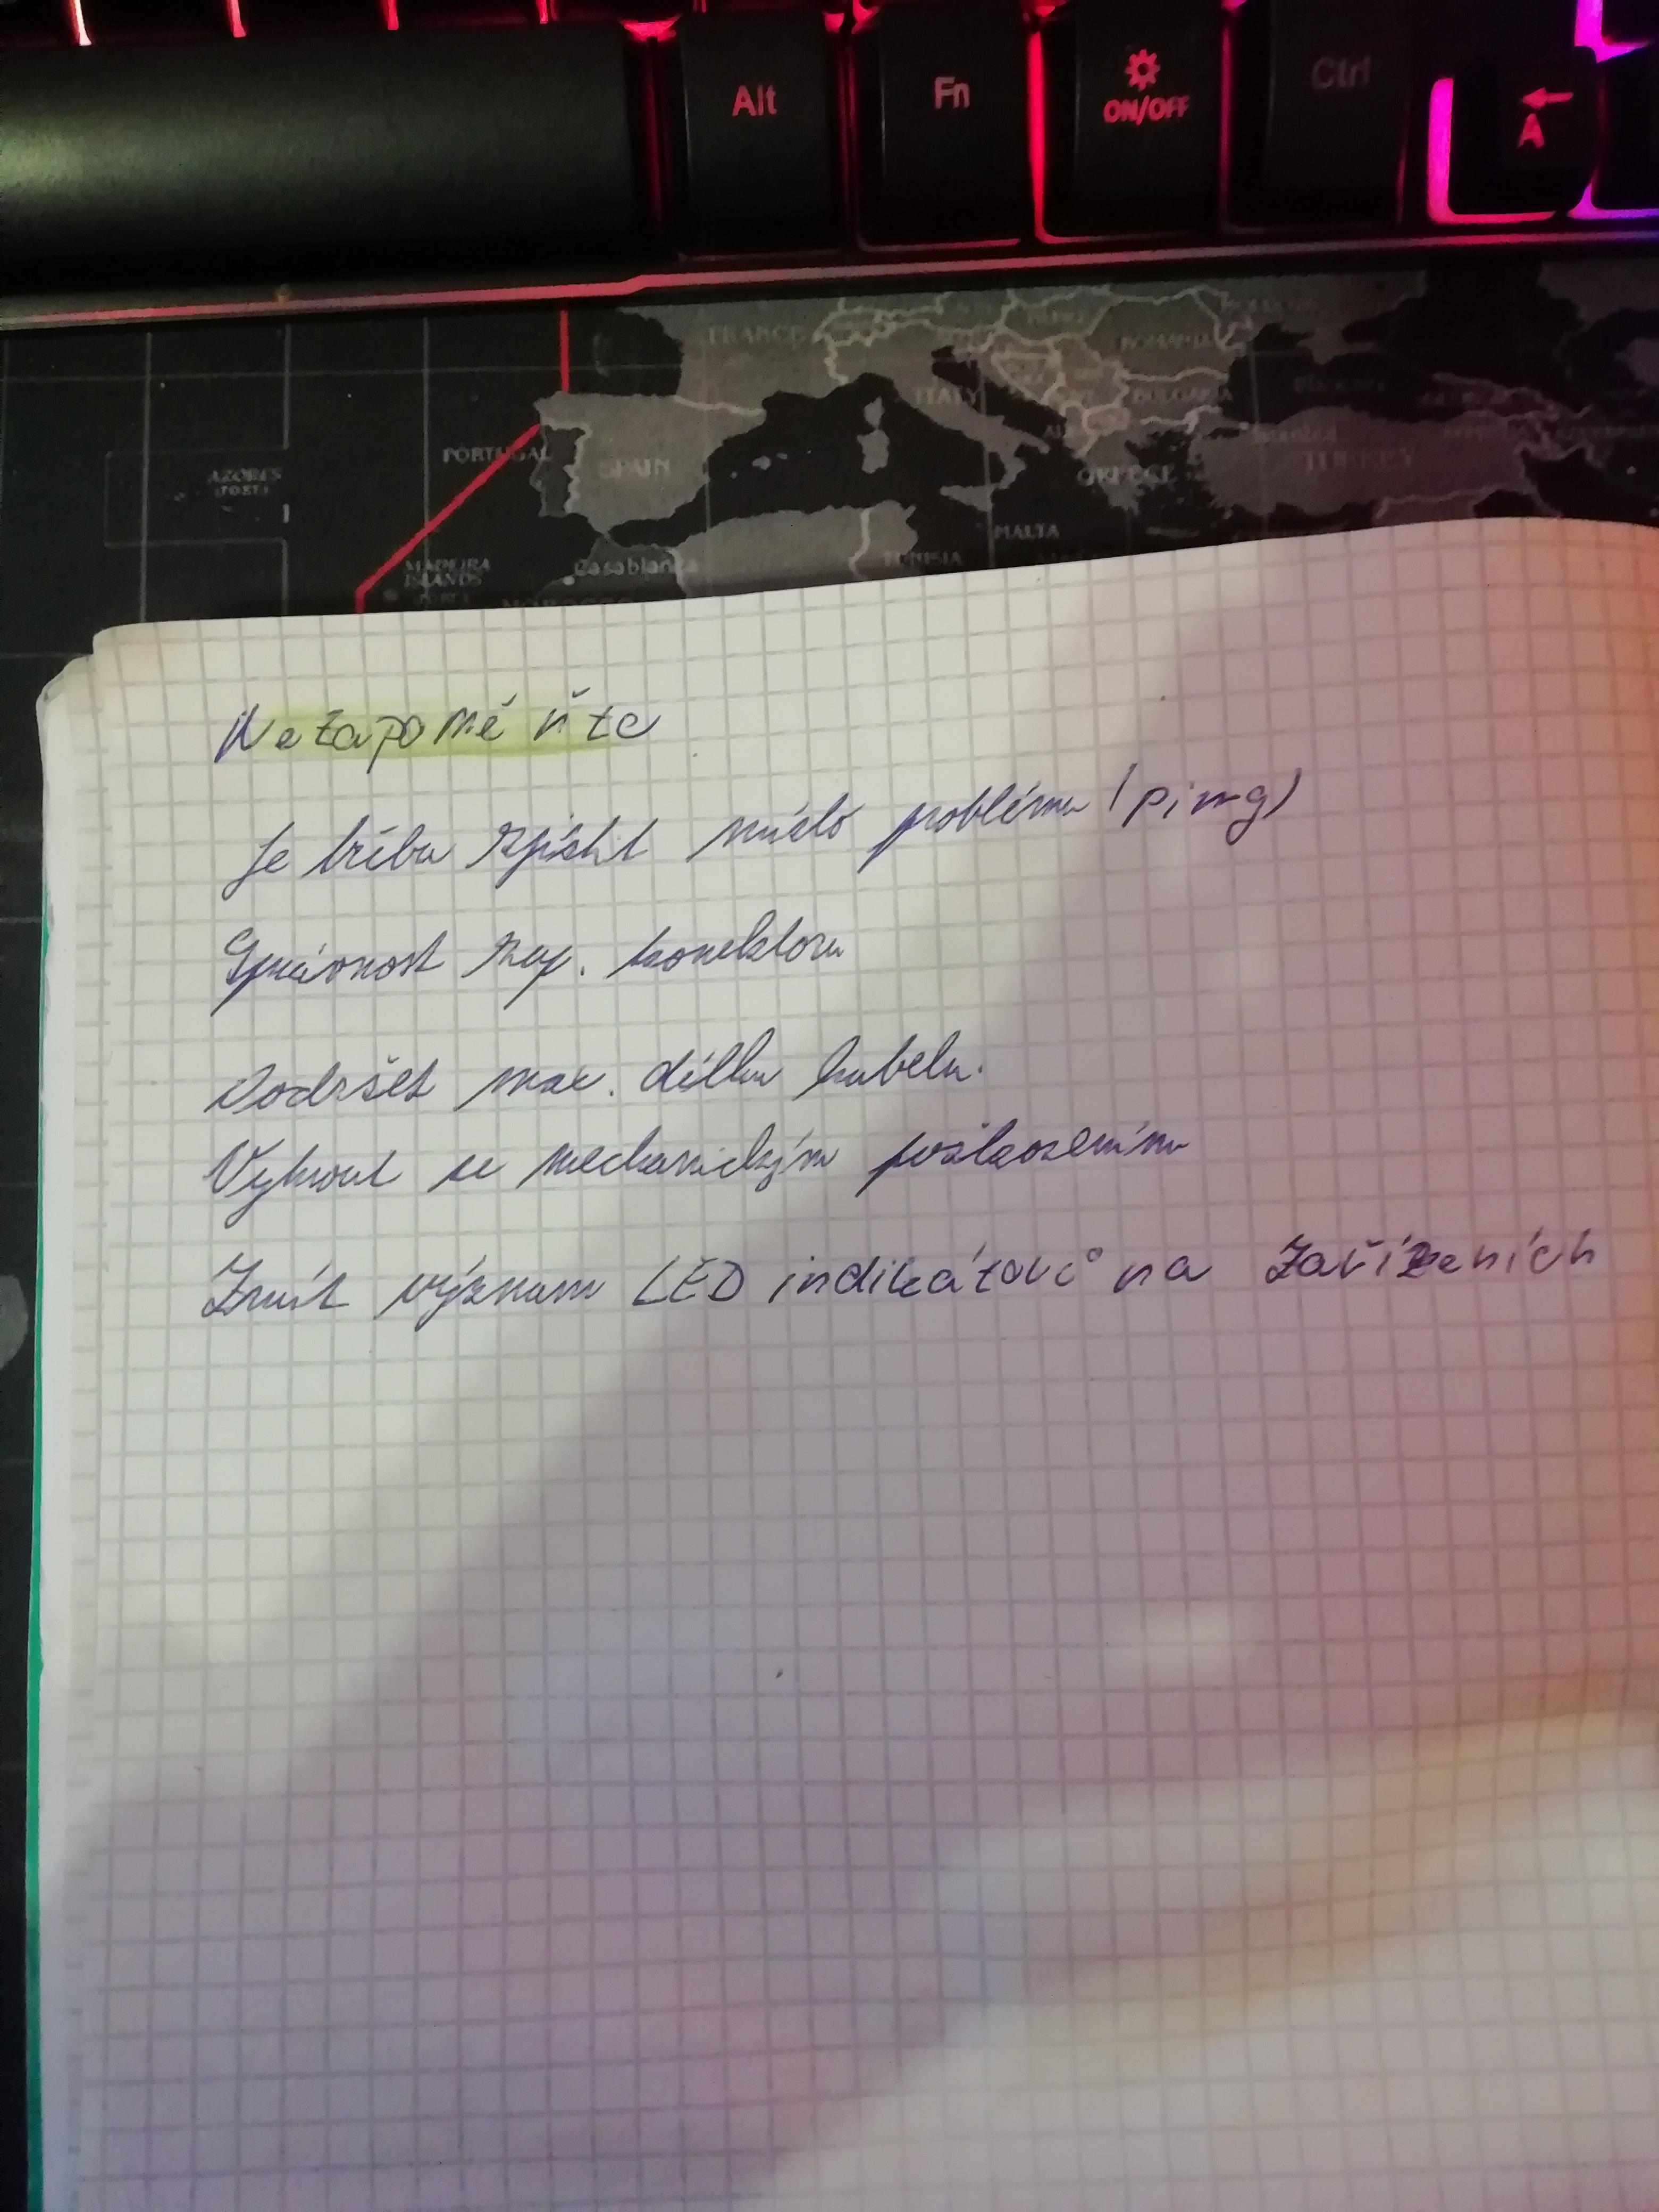 Alt Fn ON/OFF Ctrl A
FRANCE
ROMANIA
ITALY
BULGARIA
PORTUGAL SPAIN GREECE TURKEY
AZORES
MALTA
MADEIRA
ISLANDS
Casablanca TUNISIA
MOROCCO
Nezapoměňte
Je třeba zjistit místo problému (ping)
Správnost zap. konektoru
Dodržet max. délku kabelu.
Vyhnout se mechanickým poškozením
Znát význam LED indikátorů na zařízeních